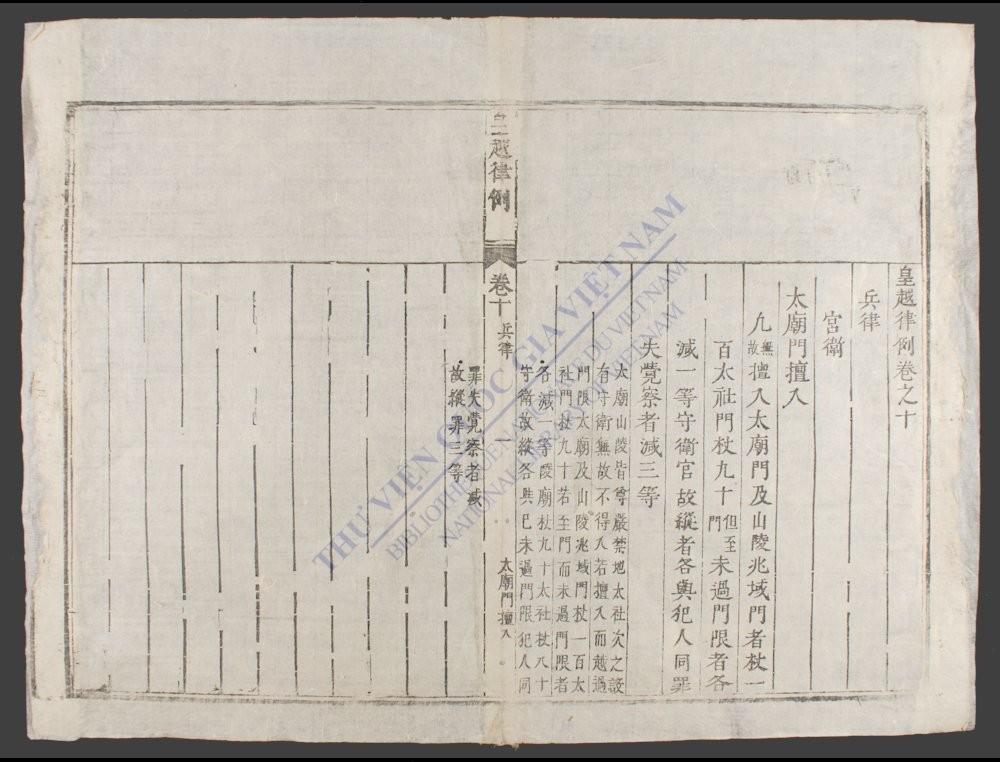 皇越律例卷之十
兵律
宮衛
太廟門擅入
凢無故擅入太廟門及山陵兆域門者杖一
百太社門杖九十但至門未過門限者各
減一等守衛官故縱者各與犯人同罪
失覺察者減三等
太廟山陵皆尊嚴禁地太社次之設
有守衛無故不得入若擅入而越過
門限太廟及山陵兆域門杖一百太
社門杖九十若至門而未過門限者
各減一等陵廟杖九十太社杖八十
守衛故縱各與已未過門限犯人同
皇越律例 卷十 兵律 一 太廟門擅入
罪失覺察者減
故縱罪三等
THƯ VIỆN QUỐC GIA VIỆT NAM
BIBLIOTHÈQUE NATIONALE DU VIETNAM
NATIONAL LIBRARY OF VIETNAM